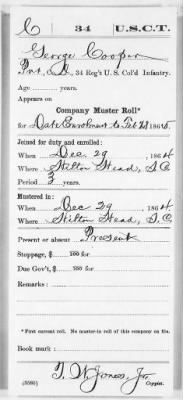 C 34 U.S.C.T.
George Cooper
Pvt, Co. D, 34 Reg't U.S. Col'd Infantry.
Age years.
Appears on
Company Muster Roll*
for Date Enrolment to Feb 28, 1865.
Joined for duty and enrolled:
When Dec 29, 1864.
Where Hilton Head, S.C.
Period 3 years.
Mustered in:
When Dec 29, 1864.
Where Hilton Head, S.C.
Present or absent Present
Stoppage, $ 100 for
Due Gov't, $ 100 for
Remarks:
*First current roll. No muster-in roll of this company on file.
Book mark:
T. W. Jones, Jr.
(358b) Copyist.